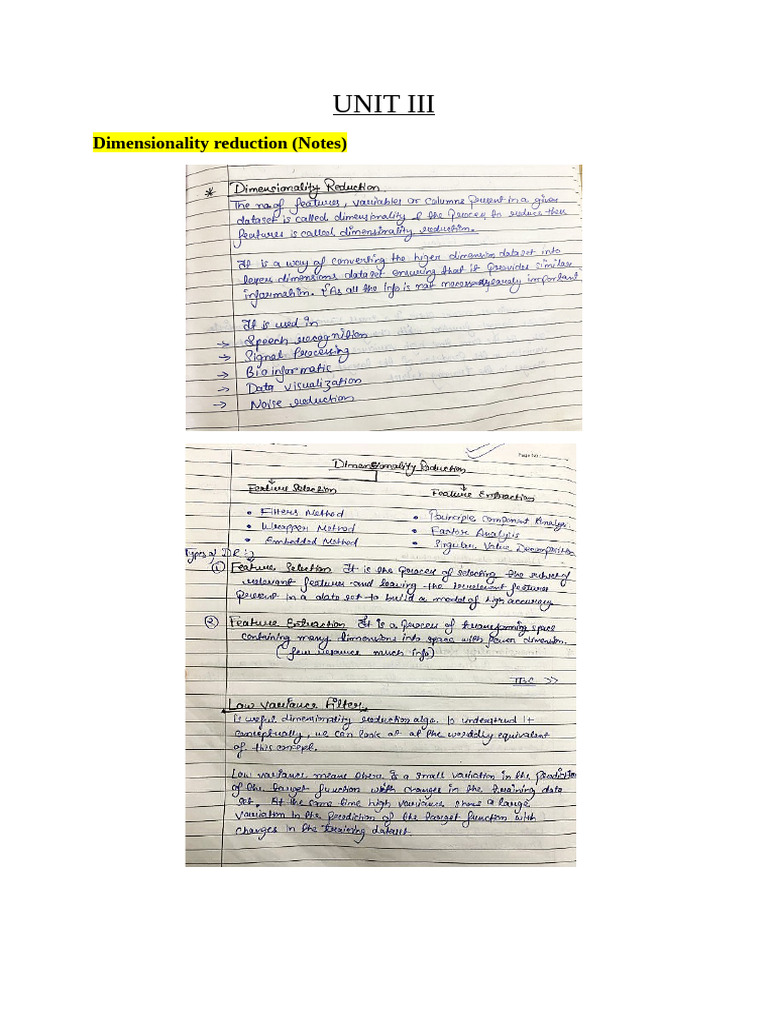 UNIT III
Dimensionality reduction (Notes)
* Dimensionality Reduction
The no of features, variables or columns present in a given
dataset is called dimensionality & the process to reduce these
features is called dimensionality reduction.
It is a way of converting the higer dimension dataset into
dimensions dataset ensuring that it provides similar
information. As all the info is not important
It is used in
→ Speech recognition
→ Signal Processing
→ Bioinformatic
→ Data visualization
→ Noise reduction
Page No
Dimensionality Reduction
Feature Selection Feature Extraction
• Filters Method • Principle Component Analysis
• Wrapper Method • Factor Analysis
• Embedded Method • Singular Value Decomposition
Types of DR :-
① Feature Selection It is the process of selecting the subset of
relevant features and leaving the irrelevant features
present in a data set to build a model of high accuracy
② Feature Extraction It is a process of transforming space
containing many dimensions into space with fewer dimension.
(few resource much info)
Low Variance Filter
is useful dimensionality reduction algo. To understand it
conceptually, we can look at at the equivalent
of this concept.
Low variance means there is a small variation in the prediction
of the target function with changes in the training data
set. At the same time high variance shows a large
variation in the prediction of the target function with
changes in the training dataset.